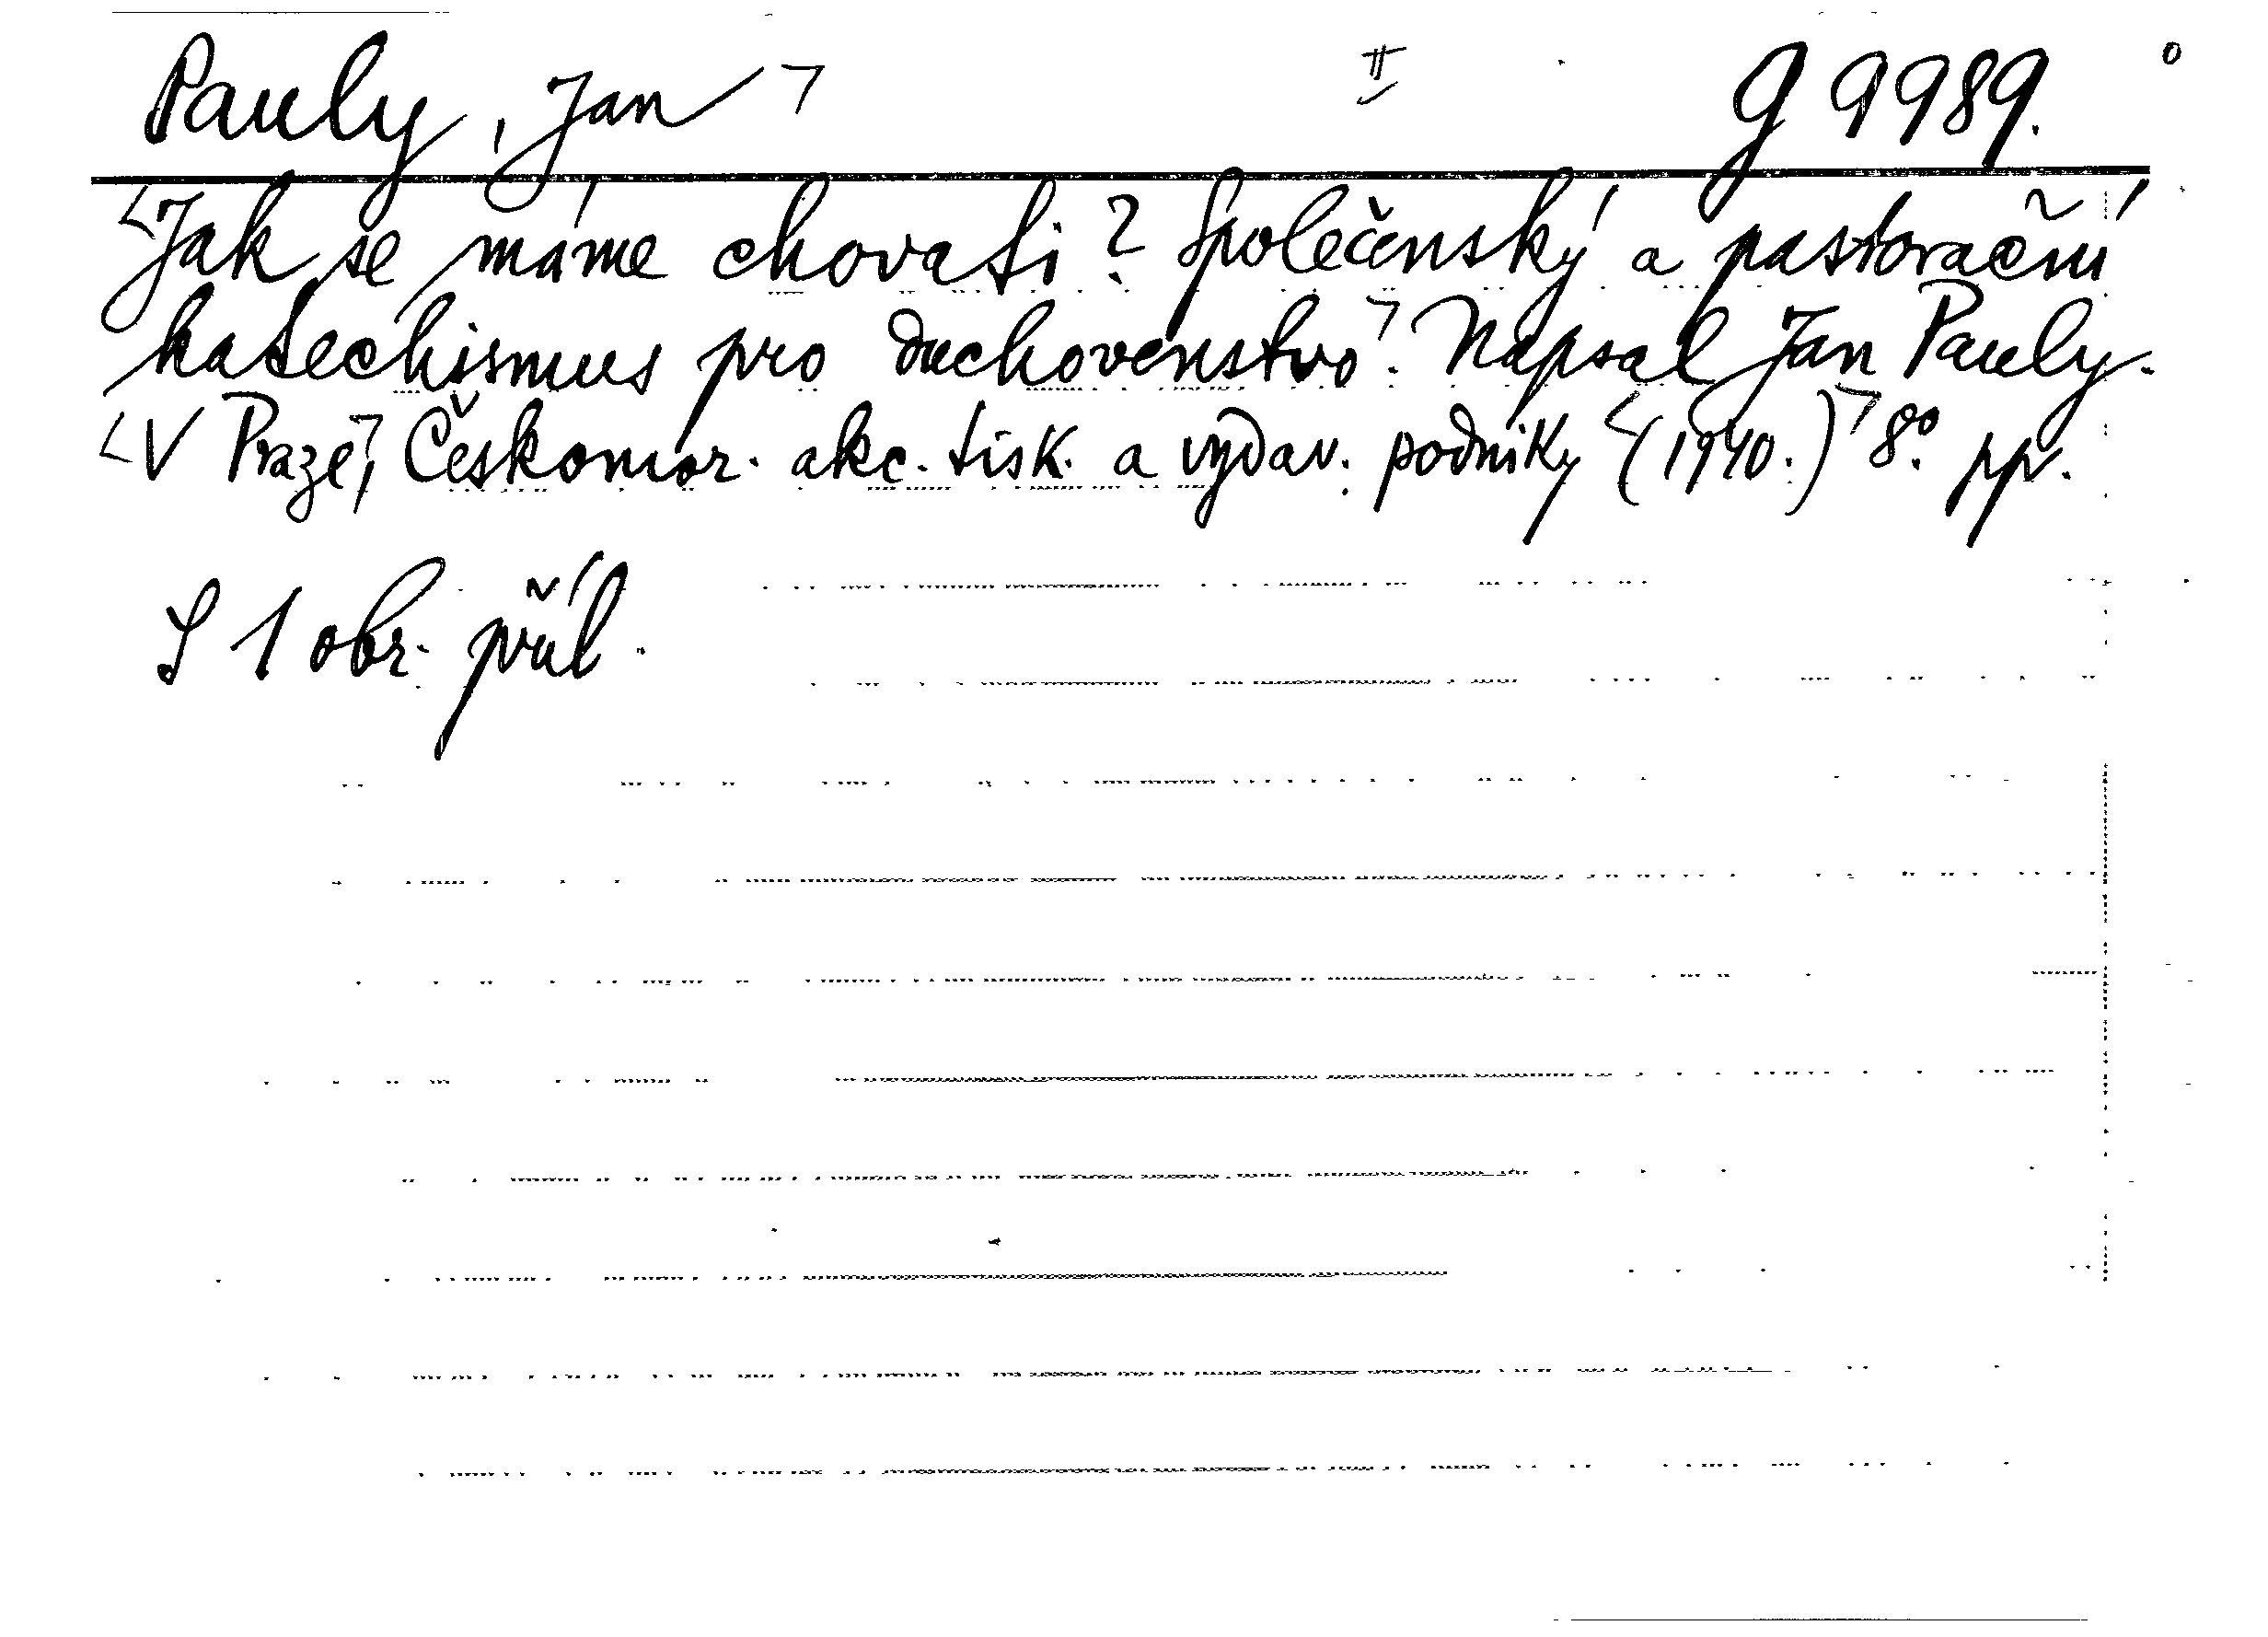 Pauly, Jan II g 9989.
Jak se máme chovati? Společenský a pastorační
katechismus pro duchovenstvo. Napsal Jan Pauly.
V Praze, Českomor. akc. tisk. a vydav. podniky (1940.) 8°. pp.
S 1 obr. příl.